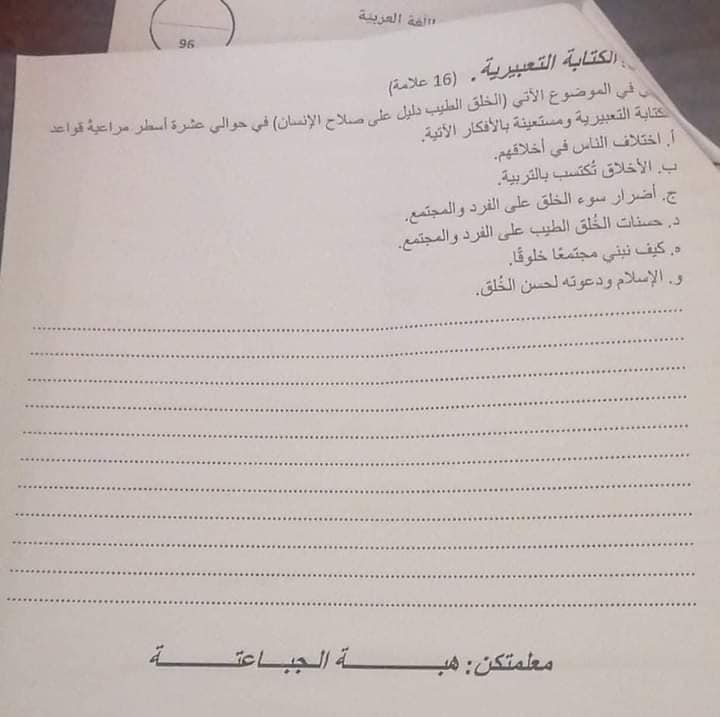 اللغة العربية
96
الكتابة التعبيرية. (16 علامة)
في الموضوع الآتي (الخلق الطيب دليل على صلاح الإنسان) في حوالي عشرة أسطر مراعية قواعد
الكتابة التعبيرية ومستعينة بالأفكار الآتية.
أ. اختلاف الناس في أخلاقهم.
ب. الأخلاق تُكتسب بالتربية.
ج. أضرار سوء الخلق على الفرد والمجتمع.
د. حسنات الخُلق الطيب على الفرد والمجتمع.
ه. كيف نبني مجتمعًا خلوقًا.
و. الإسلام ودعوته لحسن الخُلق.
معلمتكن: هبـــة الجبـــاعتـــة